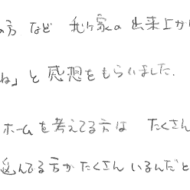 方 など 我が家の 出来上が
ね」と 感想をもらいました.
ホームを考えてる方は たくさん
込んでる方がたくさんいるんだと